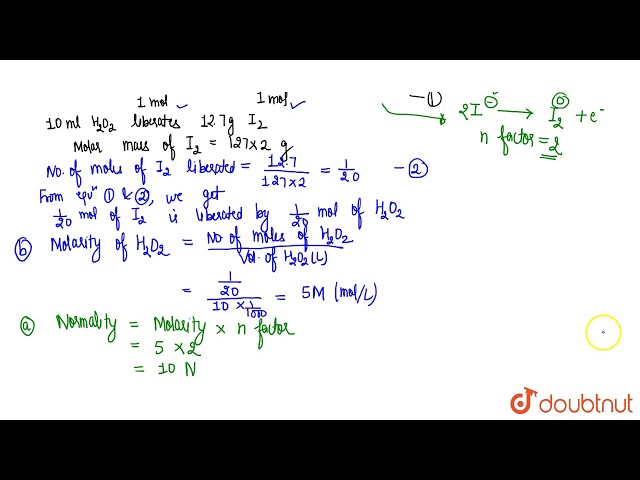 1 mol 1 mol
10 ml H2O2 liberates 12.7g I2
Molar mass of I2 = 127×2 g
No. of moles of I2 liberated = 12.7 / 127×2 = 1/20 — ②
From eqn ① & ②, we get
1/20 mol of I2 is liberated by 1/20 mol of H2O2
ⓑ Molarity of H2O2 = No of moles of H2O2 / Vol. of H2O2 (L)
= 1/20 / 10 × 1/1000 = 5M (mol/L)
ⓐ Normality = Molarity × n factor
= 5 × 2
= 10 N
— ①
2I⊖ → I2 + e-
0
n factor = 2
doubtnut